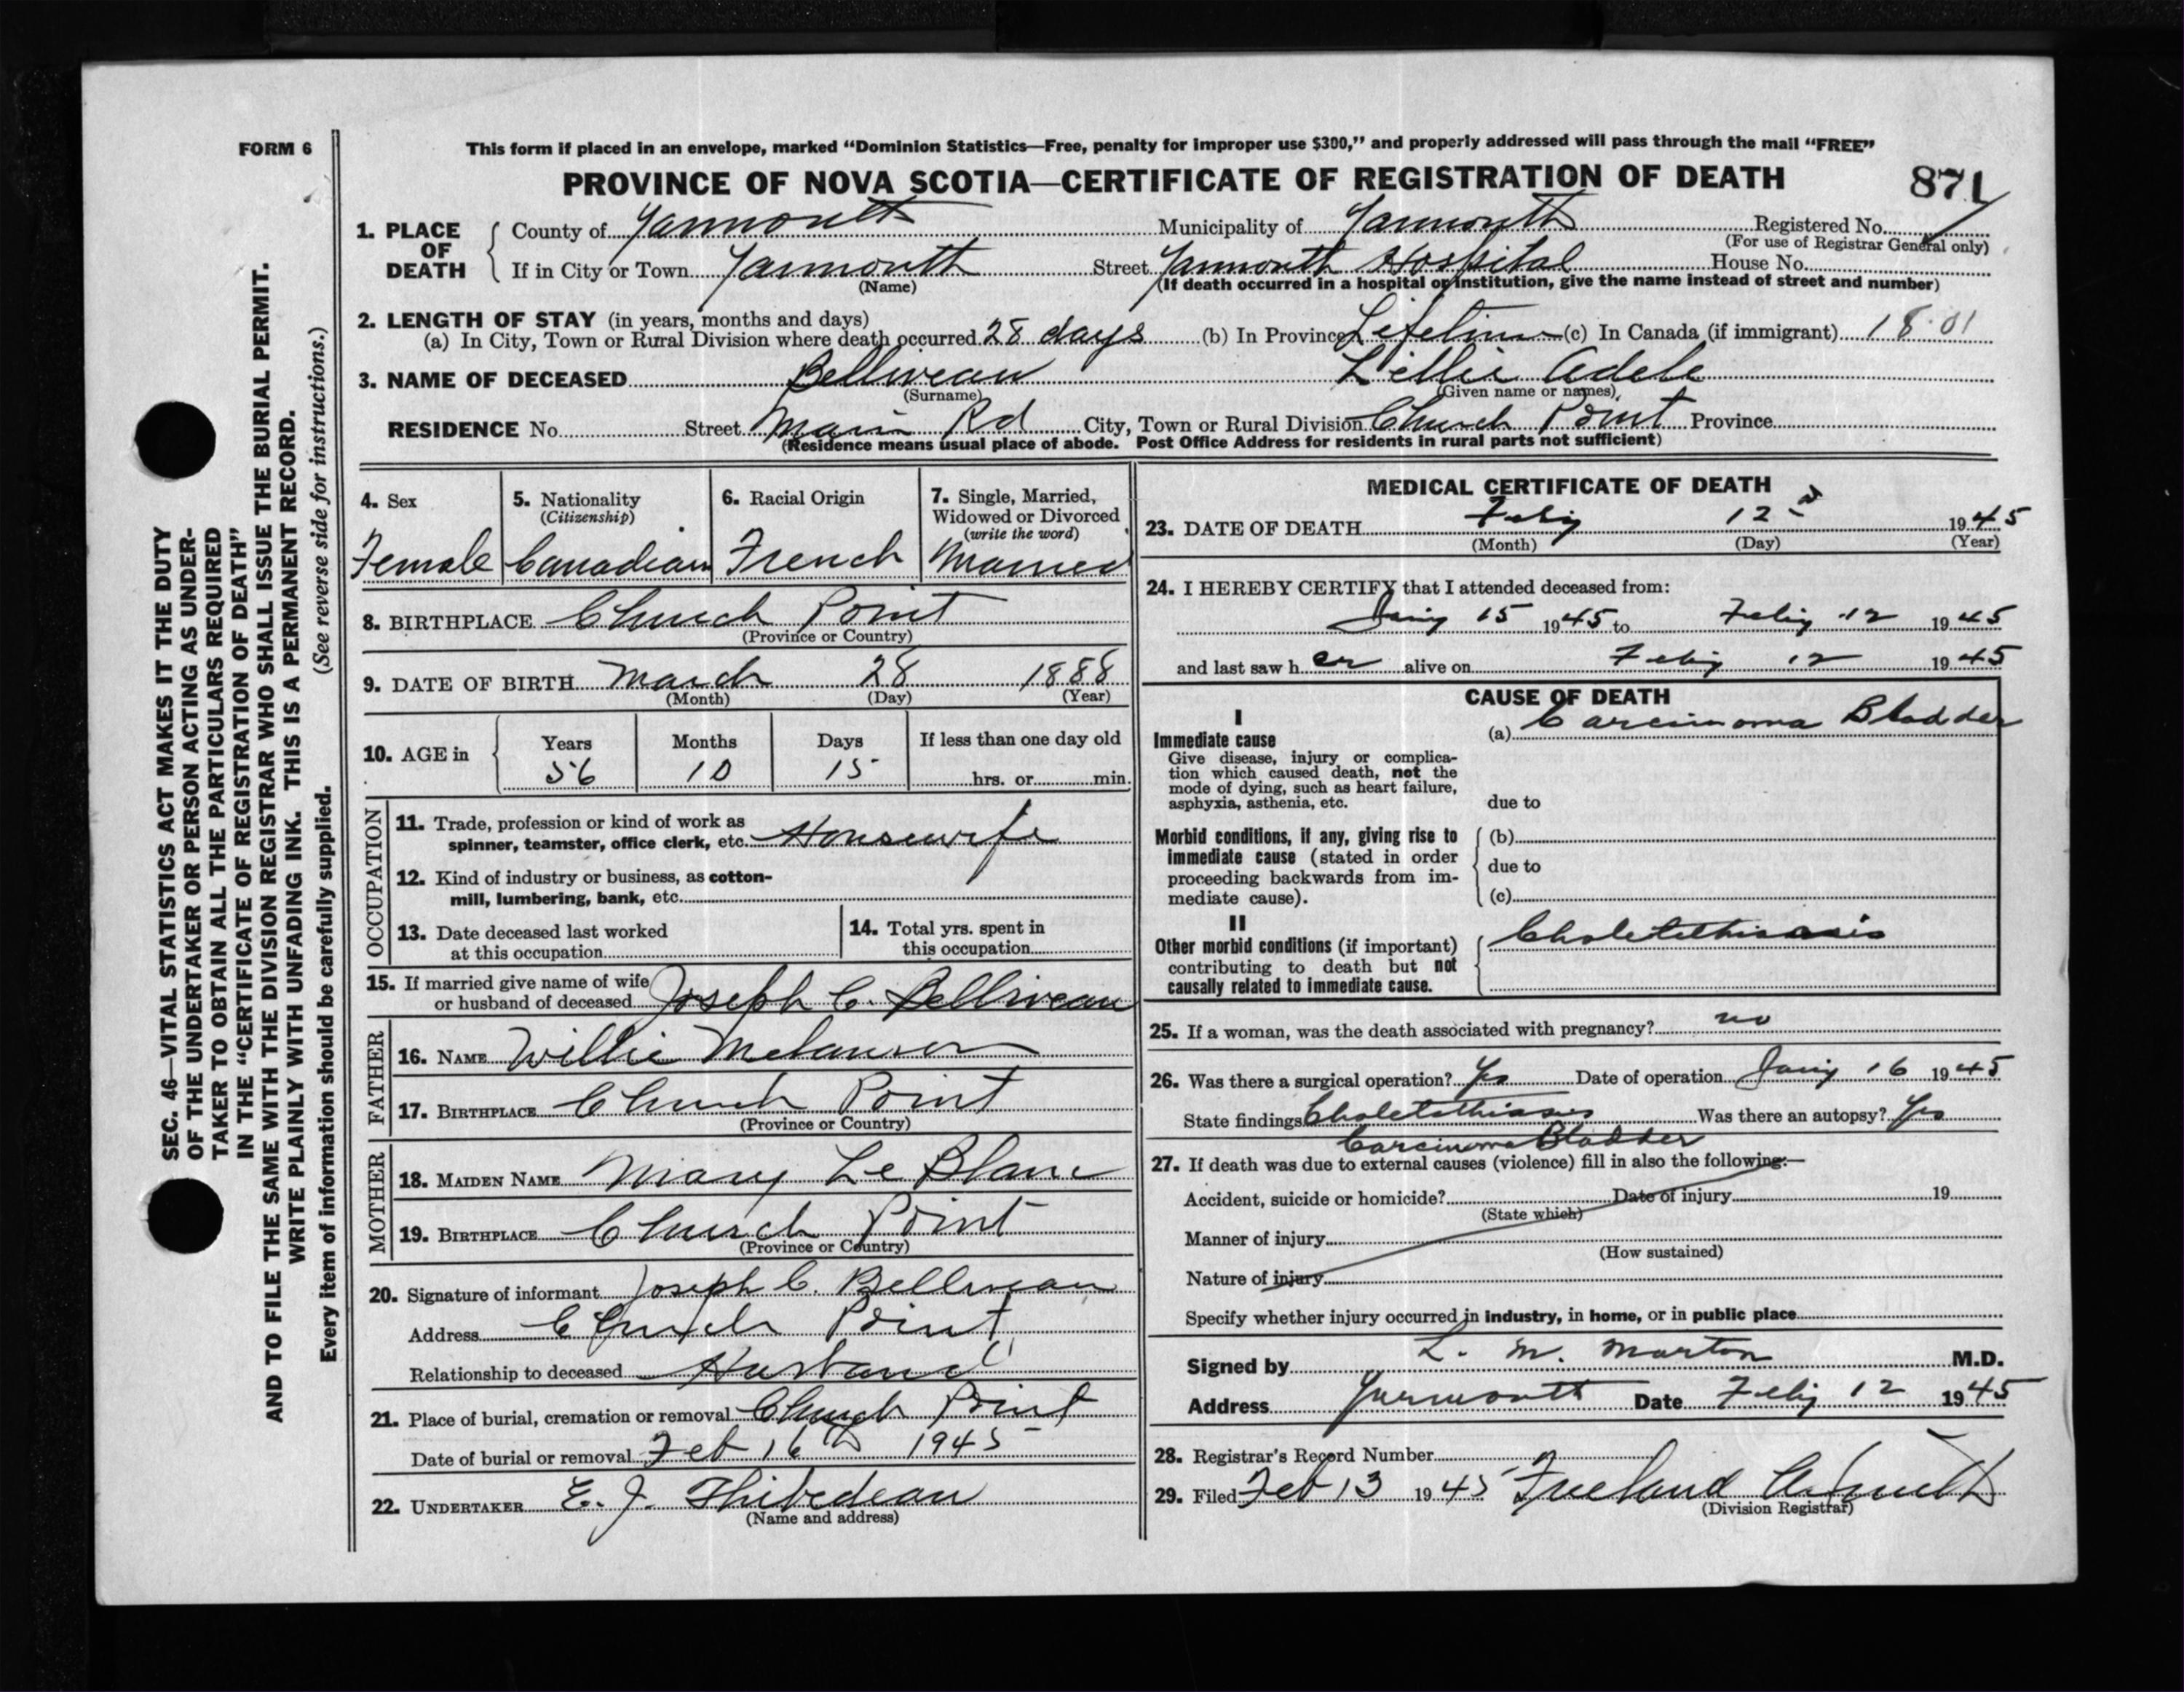 FORM 6
This form if placed in an envelope, marked “Dominion Statistics—Free, penalty for improper use $300,” and properly addressed will pass through the mail “FREE”
PROVINCE OF NOVA SCOTIA—CERTIFICATE OF REGISTRATION OF DEATH
871
1. PLACE OF DEATH
County of Yarmouth Municipality of Yarmouth Registered No.
(For use of Registrar General only)
If in City or Town Yarmouth Street Yarmouth Hospital House No.
(Name) (If death occurred in a hospital or institution, give the name instead of street and number)
2. LENGTH OF STAY (in years, months and days)
(a) In City, Town or Rural Division where death occurred 28 days (b) In Province Lifetime (c) In Canada (if immigrant) 18 01
3. NAME OF DECEASED Belliveau Lillie Adele
(Surname) (Given name or names)
RESIDENCE No. Street Main Rd City, Town or Rural Division Church Point Province
(Residence means usual place of abode. Post Office Address for residents in rural parts not sufficient)
4. Sex
Female
5. Nationality
(Citizenship)
Canadian
6. Racial Origin
French
7. Single, Married,
Widowed or Divorced
(write the word)
Married
8. BIRTHPLACE Church Point
(Province or Country)
9. DATE OF BIRTH March 28 1888
(Month) (Day) (Year)
10. AGE in
Years Months Days If less than one day old
56 10 15 hrs. or min.
OCCUPATION
11. Trade, profession or kind of work as
spinner, teamster, office clerk, etc. Housewife
12. Kind of industry or business, as cotton-
mill, lumbering, bank, etc.
13. Date deceased last worked
at this occupation
14. Total yrs. spent in
this occupation
15. If married give name of wife
or husband of deceased Joseph C. Belliveau
FATHER
16. NAME Willie Melanson
17. BIRTHPLACE Church Point
(Province or Country)
MOTHER
18. MAIDEN NAME Mary Le Blanc
19. BIRTHPLACE Church Point
(Province or Country)
20. Signature of informant Joseph C. Belliveau
Address Church Point
Relationship to deceased Husband
21. Place of burial, cremation or removal Church Point
Date of burial or removal Feb 16th 1945
22. UNDERTAKER E. J. Thibedeau
(Name and address)
MEDICAL CERTIFICATE OF DEATH
23. DATE OF DEATH Feb'y 12 1945
(Month) (Day) (Year)
24. I HEREBY CERTIFY that I attended deceased from:
Jan'y 15 1945 to Feb'y 12 1945
and last saw h er alive on Feb'y 12 1945
CAUSE OF DEATH
I
Immediate cause
Give disease, injury or complica-
tion which caused death, not the
mode of dying, such as heart failure,
asphyxia, asthenia, etc.
(a) Carcinoma Bladder
due to
Morbid conditions, if any, giving rise to
immediate cause (stated in order
proceeding backwards from im-
mediate cause).
(b)
due to
(c)
II
Other morbid conditions (if important)
contributing to death but not
causally related to immediate cause.
Choletethisasis
25. If a woman, was the death associated with pregnancy? no
26. Was there a surgical operation? Yes Date of operation Jan'y 16 1945
State findings Choletethiasis Was there an autopsy? Yes
Carcinoma Bladder
27. If death was due to external causes (violence) fill in also the following:—
Accident, suicide or homicide? Date of injury 19
(State which)
Manner of injury
(How sustained)
Nature of injury
Specify whether injury occurred in industry, in home, or in public place
Signed by L. M. Morton M.D.
Address Yarmouth Date Feb'y 12 1945
28. Registrar's Record Number
29. Filed Feb 13 1945 Freeland
(Division Registrar)
SEC. 46—VITAL STATISTICS ACT MAKES IT THE DUTY
OF THE UNDERTAKER OR PERSON ACTING AS UNDER-
TAKER TO OBTAIN ALL THE PARTICULARS REQUIRED
IN THE “CERTIFICATE OF REGISTRATION OF DEATH”
AND TO FILE THE SAME WITH THE DIVISION REGISTRAR WHO SHALL ISSUE THE BURIAL PERMIT.
WRITE PLAINLY WITH UNFADING INK. THIS IS A PERMANENT RECORD.
Every item of information should be carefully supplied. (See reverse side for instructions.)